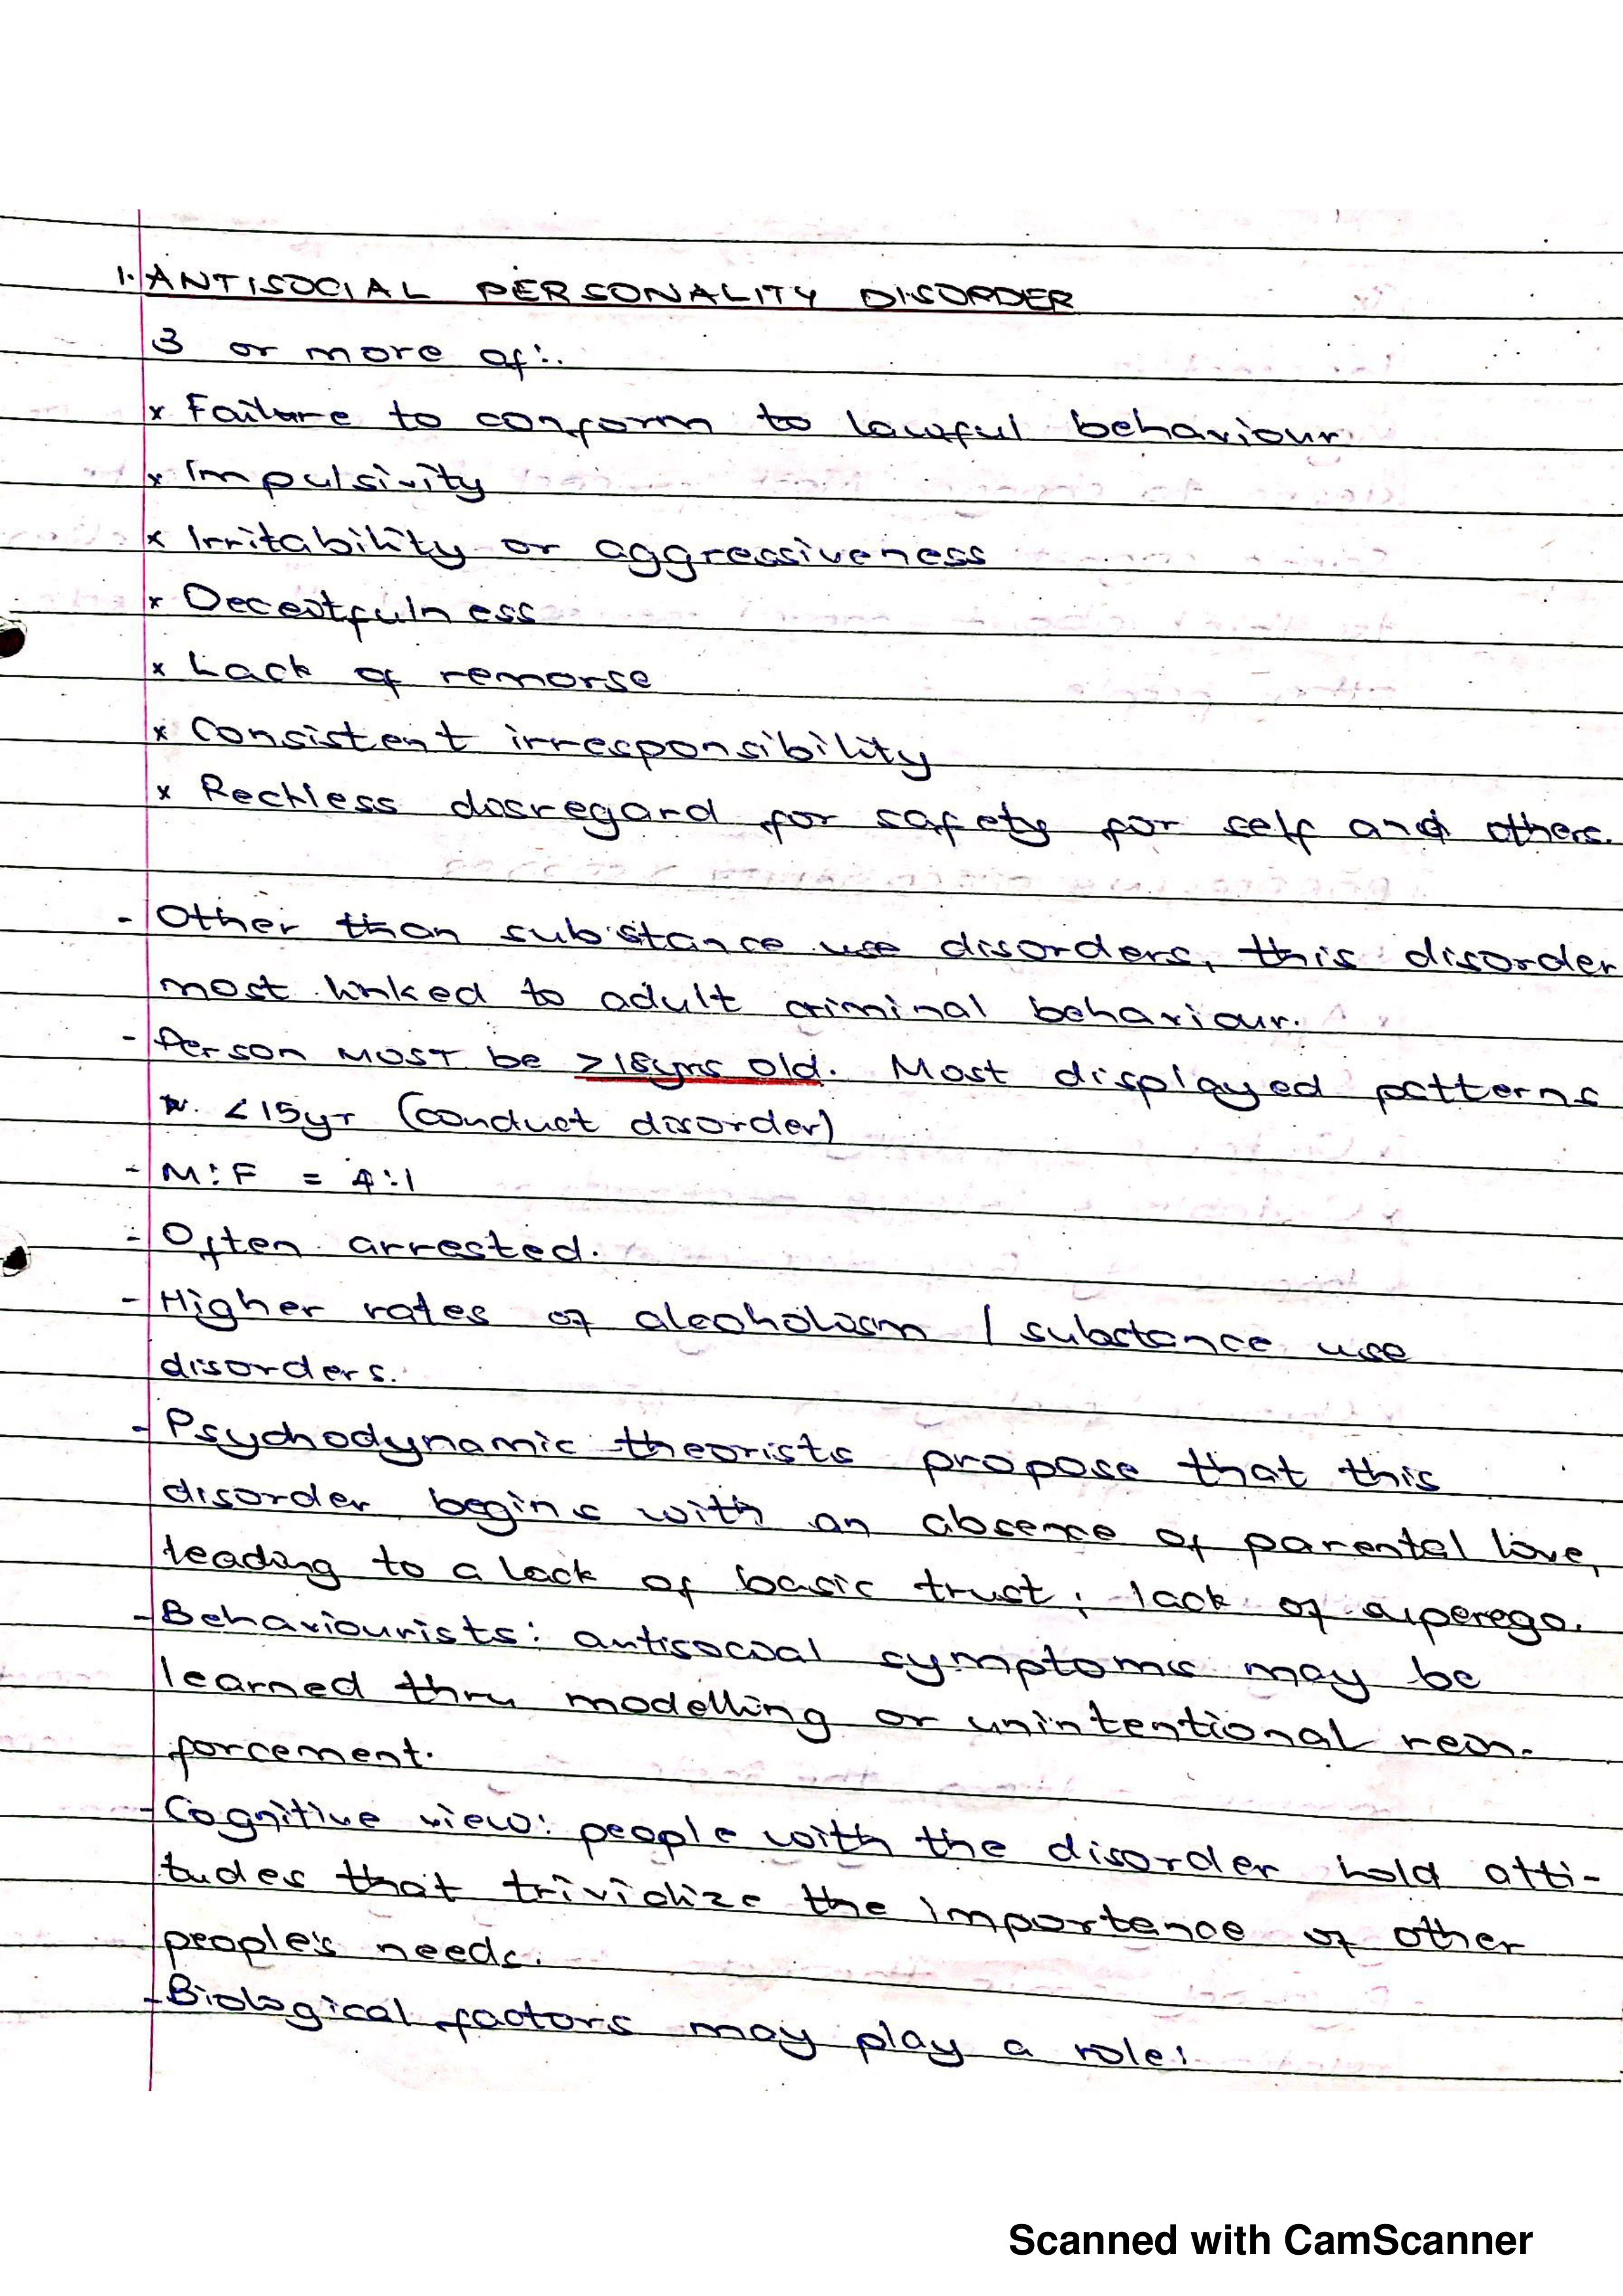 1. ANTISOCIAL PERSONALITY DISORDER
3 or more of:
x Failure to conform to lawful behaviour
x Impulsivity
x Irritability or aggressiveness
x Deceitfulness
x Lack of remorse
x Consistent irresponsibility
x Reckless disregard for safety for self and others.
- Other than substance use disorders, this disorder
most linked to adult criminal behaviour.
- Person MUST be >18yrs old. Most displayed patterns
<15yr (conduct disorder)
- M:F = 4:1
- Often arrested.
- Higher rates of alcoholism / substance use
disorders.
- Psychodynamic theorists propose that this
disorder begins with an absence of parental love,
leading to a lack of basic trust; lack of superego.
- Behaviourists: antisocial symptoms may be
learned thru modelling or unintentional rein-
forcement.
- Cognitive view: people with the disorder hold atti-
tudes that trivialize the importance of other
people's needs.
- Biological factors may play a role:
Scanned with CamScanner